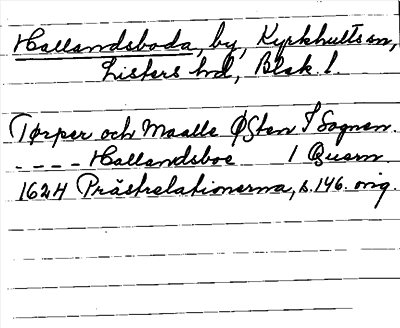 Hallandsboda, by, Kyrkhults sn,
Listers hd, Blek. l.
Tørper och Maalle Østen I Sognen.
- - - - Hallandsboe 1 Quern
1624 Prästrelationerna, s. 146. orig.